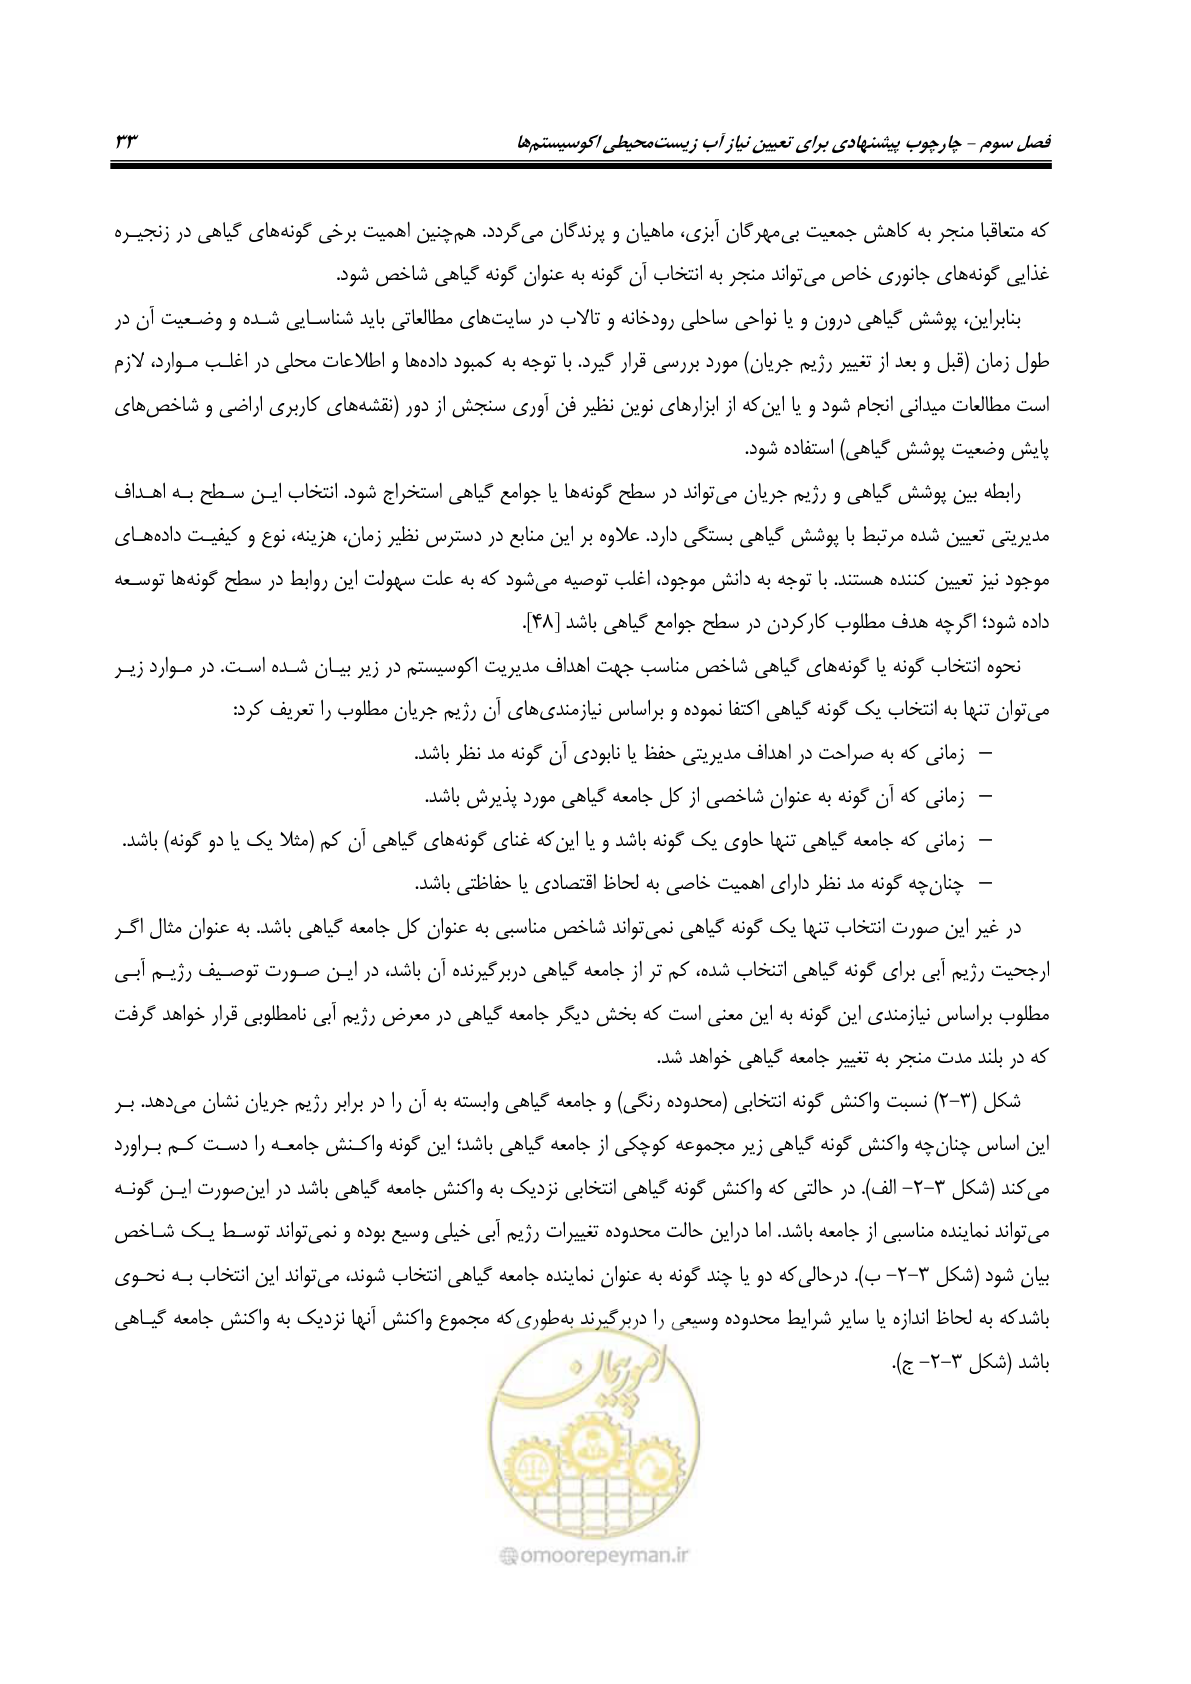 فصل سوم – چارچوب پیشنهادی برای تعیین نیاز آب زیست‌محیطی اکوسیستم‌ها ۳۳
که متعاقبا منجر به کاهش جمعیت بی‌مهرگان آبزی، ماهیان و پرندگان می‌گردد. هم‌چنین اهمیت برخی گونه‌های گیاهی در زنجیره
غذایی گونه‌های جانوری خاص می‌تواند منجر به انتخاب آن گونه به عنوان گونه گیاهی شاخص شود.
بنابراین، پوشش گیاهی درون و یا نواحی ساحلی رودخانه و تالاب در سایت‌های مطالعاتی باید شناسایی شده و وضعیت آن در
طول زمان (قبل و بعد از تغییر رژیم جریان) مورد بررسی قرار گیرد. با توجه به کمبود داده‌ها و اطلاعات محلی در اغلب موارد، لازم
است مطالعات میدانی انجام شود و یا این‌که از ابزارهای نوین نظیر فن آوری سنجش از دور (نقشه‌های کاربری اراضی و شاخص‌های
پایش وضعیت پوشش گیاهی) استفاده شود.
رابطه بین پوشش گیاهی و رژیم جریان می‌تواند در سطح گونه‌ها یا جوامع گیاهی استخراج شود. انتخاب این سطح به اهداف
مدیریتی تعیین شده مرتبط با پوشش گیاهی بستگی دارد. علاوه بر این منابع در دسترس نظیر زمان، هزینه، نوع و کیفیت داده‌های
موجود نیز تعیین کننده هستند. با توجه به دانش موجود، اغلب توصیه می‌شود که به علت سهولت این روابط در سطح گونه‌ها توسعه
داده شود؛ اگرچه هدف مطلوب کارکردن در سطح جوامع گیاهی باشد [۴۸].
نحوه انتخاب گونه یا گونه‌های گیاهی شاخص مناسب جهت اهداف مدیریت اکوسیستم در زیر بیان شده است. در موارد زیر
می‌توان تنها به انتخاب یک گونه گیاهی اکتفا نموده و براساس نیازمندی‌های آن رژیم جریان مطلوب را تعریف کرد:
– زمانی که به صراحت در اهداف مدیریتی حفظ یا نابودی آن گونه مد نظر باشد.
– زمانی که آن گونه به عنوان شاخصی از کل جامعه گیاهی مورد پذیرش باشد.
– زمانی که جامعه گیاهی تنها حاوی یک گونه باشد و یا این‌که غنای گونه‌های گیاهی آن کم (مثلا یک یا دو گونه) باشد.
– چنان‌چه گونه مد نظر دارای اهمیت خاصی به لحاظ اقتصادی یا حفاظتی باشد.
در غیر این صورت انتخاب تنها یک گونه گیاهی نمی‌تواند شاخص مناسبی به عنوان کل جامعه گیاهی باشد. به عنوان مثال اگر
ارجحیت رژیم آبی برای گونه گیاهی اتنخاب شده، کم تر از جامعه گیاهی دربرگیرنده آن باشد، در این صورت توصیف رژیم آبی
مطلوب براساس نیازمندی این گونه به این معنی است که بخش دیگر جامعه گیاهی در معرض رژیم آبی نامطلوبی قرار خواهد گرفت
که در بلند مدت منجر به تغییر جامعه گیاهی خواهد شد.
شکل (۳-۲) نسبت واکنش گونه انتخابی (محدوده رنگی) و جامعه گیاهی وابسته به آن را در برابر رژیم جریان نشان می‌دهد. بر
این اساس چنان‌چه واکنش گونه گیاهی زیر مجموعه کوچکی از جامعه گیاهی باشد؛ این گونه واکنش جامعه را دست کم براورد
می‌کند (شکل ۳-۲- الف). در حالتی که واکنش گونه گیاهی انتخابی نزدیک به واکنش جامعه گیاهی باشد در این‌صورت این گونه
می‌تواند نماینده مناسبی از جامعه باشد. اما دراین حالت محدوده تغییرات رژیم آبی خیلی وسیع بوده و نمی‌تواند توسط یک شاخص
بیان شود (شکل ۳-۲- ب). درحالی‌که دو یا چند گونه به عنوان نماینده جامعه گیاهی انتخاب شوند، می‌تواند این انتخاب به نحوی
باشدکه به لحاظ اندازه یا سایر شرایط محدوده وسیعی را دربرگیرند به‌طوری‌که مجموع واکنش آنها نزدیک به واکنش جامعه گیاهی
باشد (شکل ۳-۲- ج).
امور پیمان
@omoorepeyman.ir